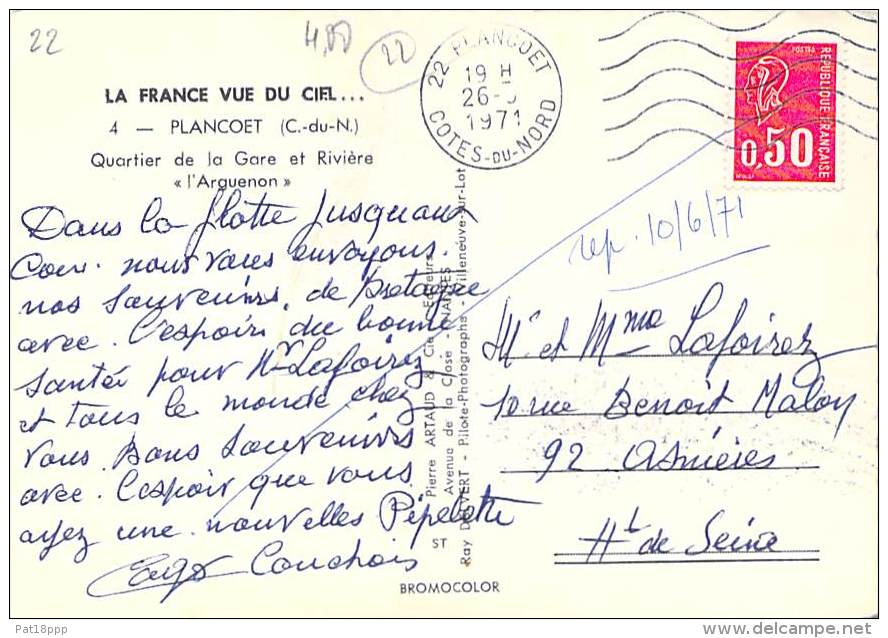 22
4,00
22
22 PLANCOET
19 H
26-5
1971
COTES-DU-NORD
POSTES
REPUBLIQUE FRANÇAISE
0,50
LA FRANCE VUE DU CIEL...
4 — PLANCOET (C.-du-N.)
Quartier de la Gare et Rivière
« l'Arguenon »
Dans la flotte Jusquaux
Cou. nous vous envoyons.
nos Souvenirs. de Bretagne
avec. l'espoir. du bonne
Santée pour Mr Lafoirez
et Tous le monde chez
vous Bons Souvenirs
avec. l'espoir que vous
ayez une nouvelles Pipelette
Couchois
rep. 10/6/71
Mr et Mme Lafoirez
10 rue Benoit Malon
92 Asnières
Ht de Seine
Pierre ARTAUD & Cie - Editeurs
Avenue de la Close - NANTES
Ray DELVERT - Pilote-Photographe - Villeneuve-sur-Lot
ST
BROMOCOLOR
Pat18ppp
delcampe.net